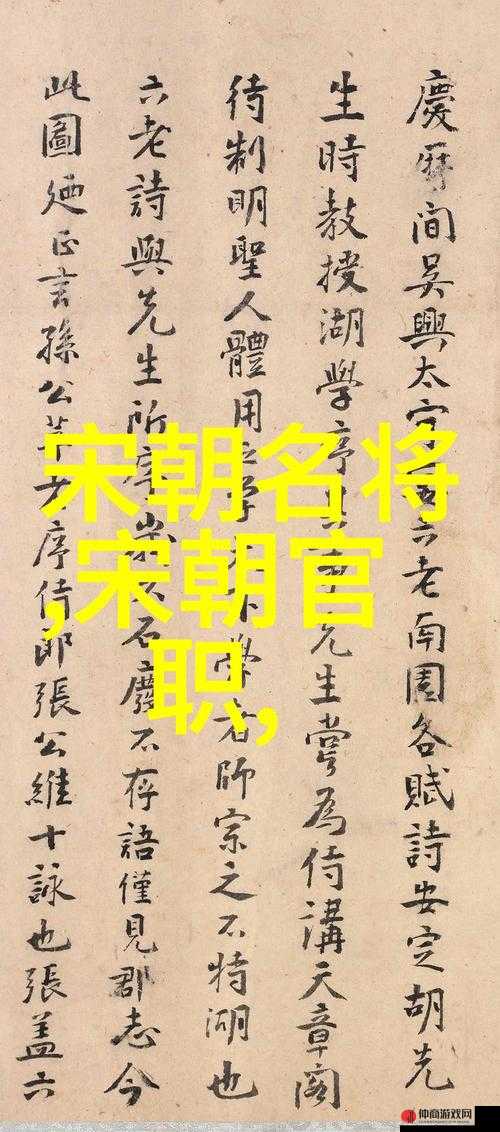 慶曆間吳興太守
六老南園各賦詩安定胡先
生時教授湖學序
先生嘗為侍講天章閣
待制明聖人體用
學者師宗之不特湖也
六老詩與先生所
石廢不存語僅見郡志今
此圖廼
孫公莘老序侍郎張公維十詠也張蓋六
宋朝名将
,宋朝官
职,
仲商游戏网